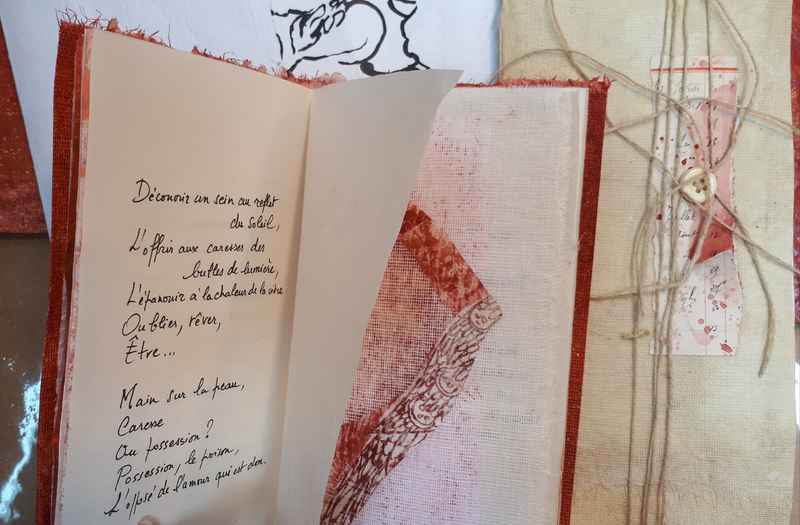 Découvrir un sein au reflet
du soleil,
L'offrir aux caresses des
bulles de lumière,
L'épanouir à la chaleur de la
Oublier, rêver,
Être...
Main sur la peau,
Caresse
Ou possession ?
Possession, le poison,
L'opposé de l'amour qui est don.